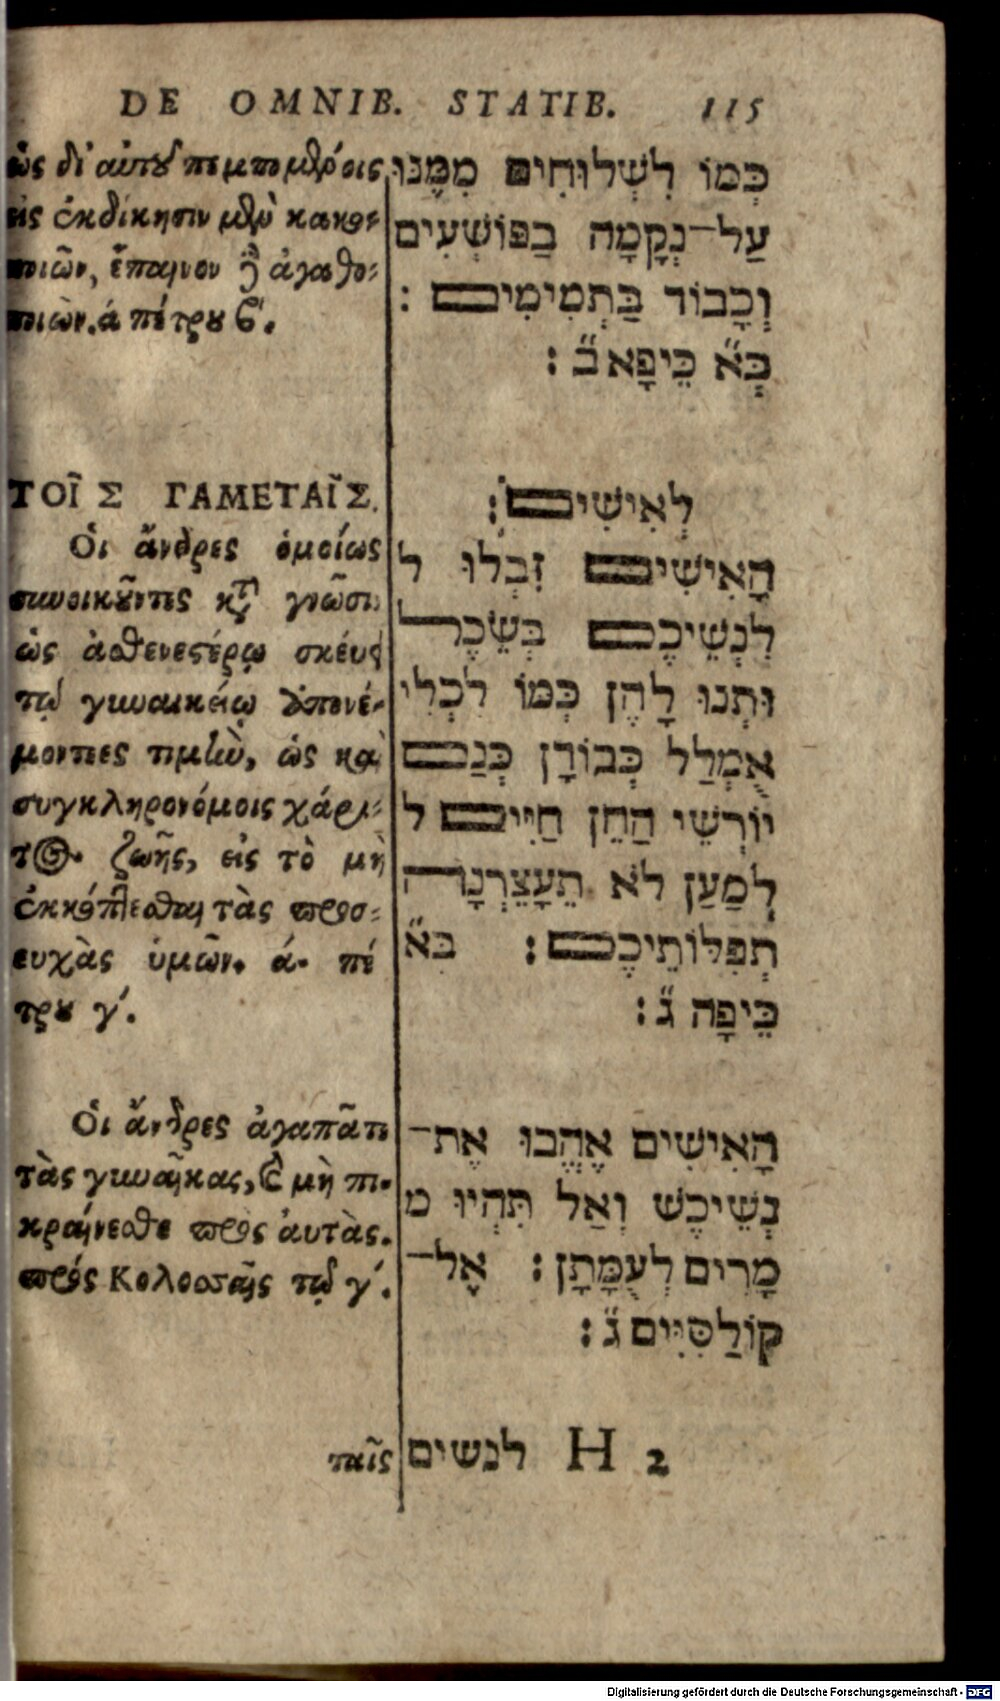 DE OMNIB. STATIB. 115
ὡς δι' αὐτοῦ πεμπομένοις
εἰς ἐκδίκησιν μὲν κακο-
ποιῶν, ἔπαινον δὲ ἀγαθο-
ποιῶν. ά πέτρου β'.
ΤΟΙ͂Σ ΓΑΜΕΤΑΙ͂Σ.
Οἱ ἄνδρες ὁμοίως
συνοικοῦντες κτ γνῶσιν
ὡς ἀσθενεστέρῳ σκέυει
τῷ γυναικείῳ ἀπονέ-
μοντες τιμὴν, ὡς καὶ
συγκληρονόμοις χάρι-
τος ζωῆς, εἰς τὸ μὴ
ἐκκόπτεσθαι τὰς προσ-
ευχὰς ὑμῶν. ά. πέ
τρου γ'.
Οἱ ἄνδρες ἀγαπᾶτε
τὰς γυναῖκας, καὶ μὴ πι-
κραίνεσθε πρὸς ἀυτὰς.
πρός Κολοσσαῖς τῷ γ'.
ταῖς
כְּמוֹ לִשְׁלוּחִים מִמֶּנּוּ
עַל־נְקָמָה בַּפּוֹשְׁעִים
וְכָבוֹד בַּתְמִימִים :
בְּא̋ כֵּיפָא ב̋ :
לְאִישִׁים :
הָאִישִׁים זִבְלוּ ל
לִנְשֵׁיכֶם בְּשֵׂכֶל
וּתְנוּ לָהֶן כְּמוֹ לִכְלִי
אֻמְלַל כְּבוֹדָן כְּגַם
יוֹרְשֵׁי הַחֵן חַיִּים ל
לְמַעַן לֹא תֵּעָצֵרְנָה
תְפִלּוֹתֵיכֶם : בְּא̋
כֵּיפָה ג̋ :
הָאִישִׁים אֶהֱבוּ אֶת־
נְשֵׁיכֶשׁ וְאַל תִּהְיוּ מ
מָרִים לְעֻמָּתָן : אֶל־
קוֹלַסִּיִּים ג̋ :
לנשים H 2
Digitalisierung gefördert durch die Deutsche Forschungsgemeinschaft - DFG